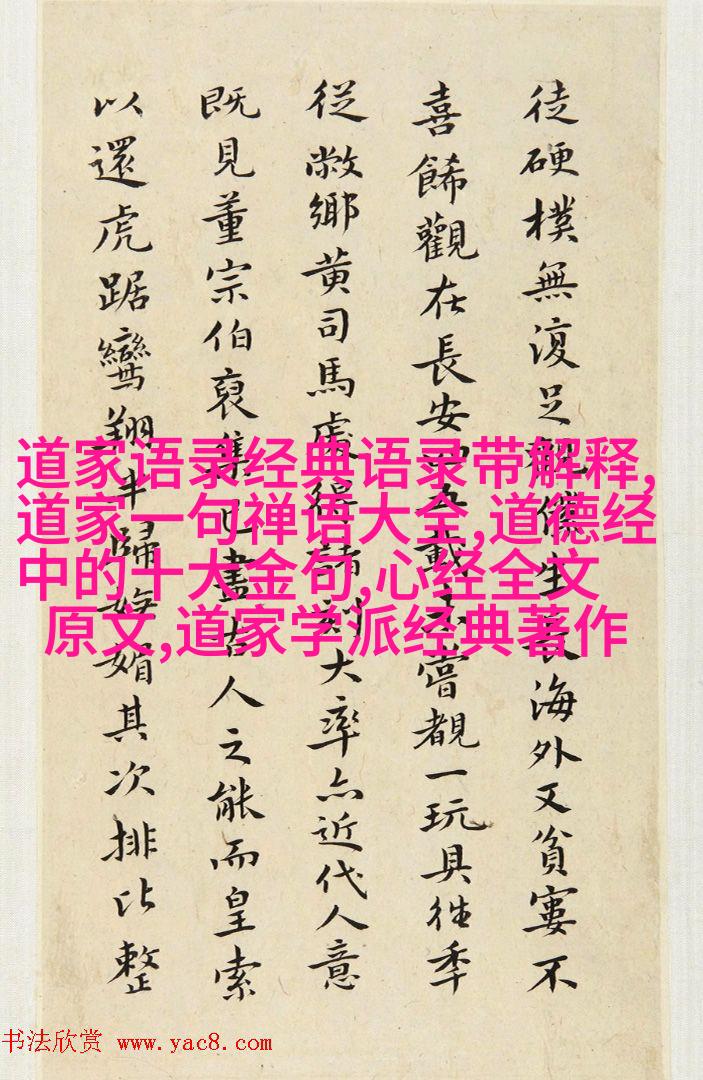 徒硬樸無復足觀僕生長海外又貧窶不
喜餙觀在長安四五載未嘗覩一玩具往季
從敝鄉黄司馬處得諸刻大率亦近代人意
既見董宗伯裒集已盡古人之能而皇索
以還虎踞鸞翔半歸嫵媚其次排比整
道家语录经典语录带解释,
道家一句禅语大全,道德经
中的十大金句,心经全文
原文,道家学派经典著作
书法欣赏 www.yac8.com